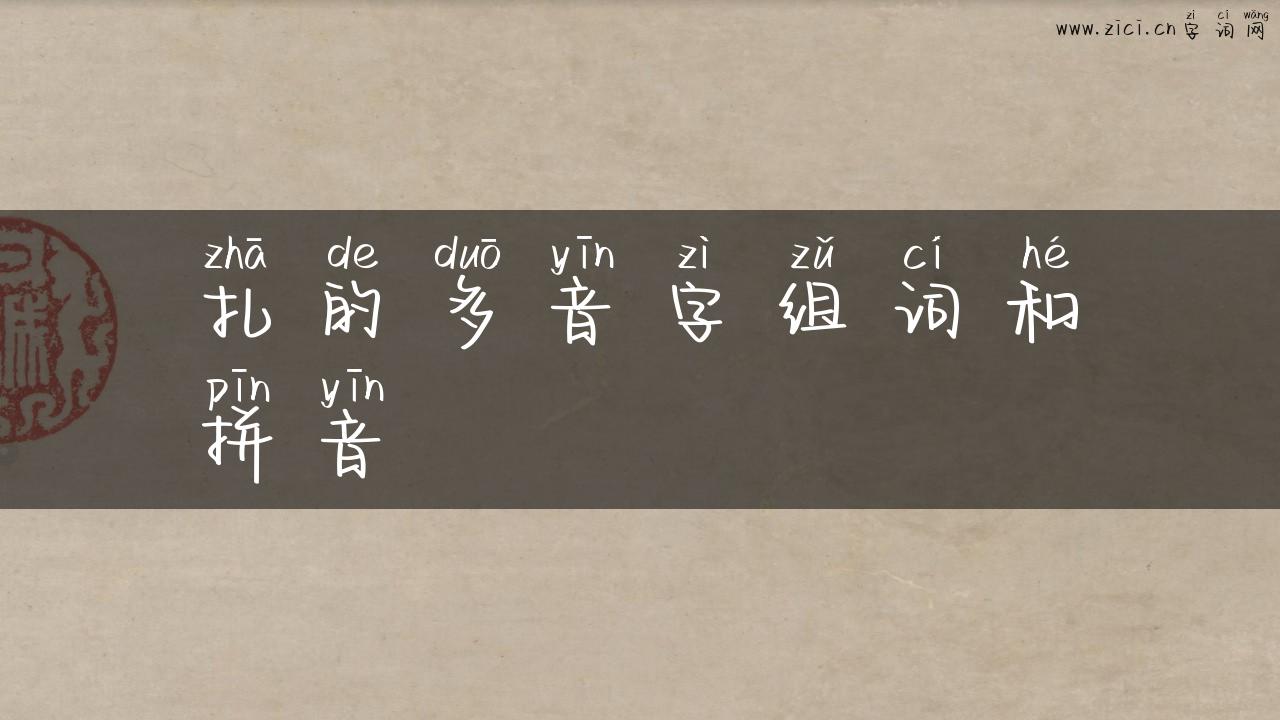 zì cí wǎng
www.zici.cn 字词网
zhā de duō yīn zì zǔ cí hé
扎的多音字组词和
pīn yīn
拼音